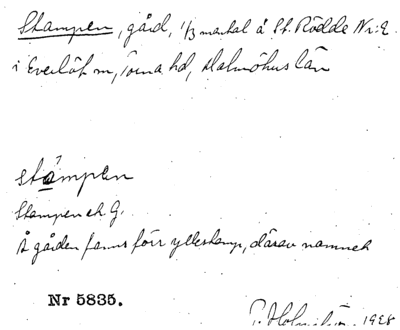 Stampen, gård, 1/3 mantal å St. Rödde Nr: 2
i Everlöf sn, Torna hd, Malmöhus län
stampen
Stampen ek G.
På gården fanns förr yllestamp, därav namnet
Nr 5835.
1928